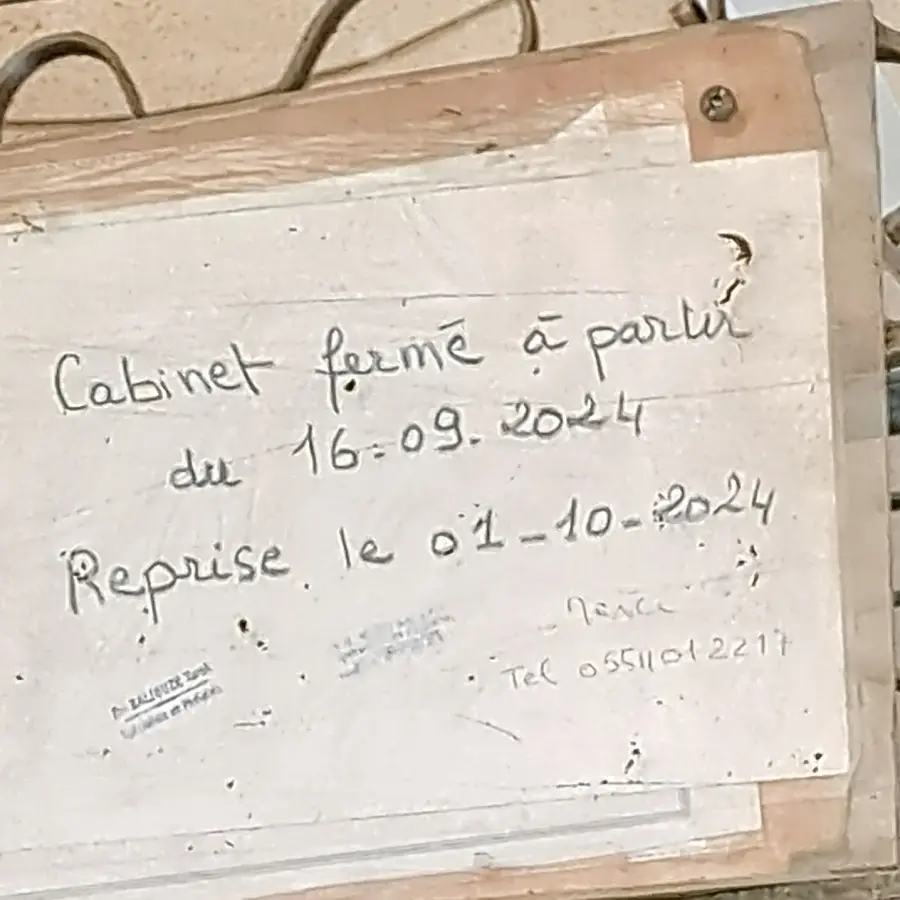 Cabinet fermé à partir
du 16-09-2024
Reprise le 01-10-2024
Merci
Tel 05511012217